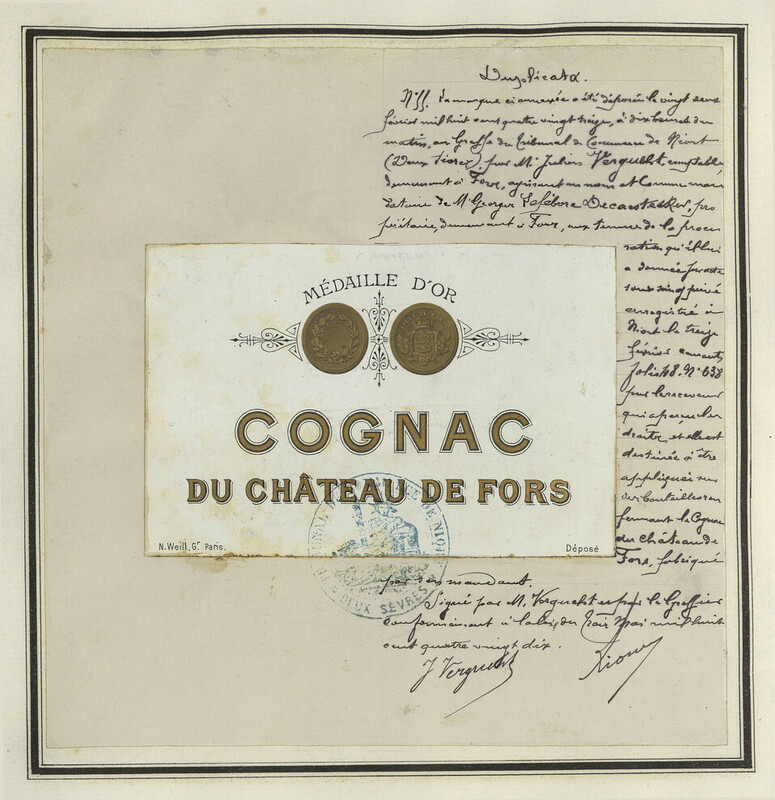 Duplicata.
N° 11. La marque ci annexée a été déposée le vingt deux
février mil huit cent quatre vingt treize, à dix heures du
matin, au Greffe du Tribunal de Commerce de Niort
(Deux Sèvres), par Mr Julien Verguekt, comptable
demeurant à Fors, agissant au nom et comme man
dataire de M. Georges Lefébvre pro
priétaire, demeurant à Fors, aux termes de la procu
ration qu'il lui
a donnée par acte
sous seing privé
enregistré à
Niort le treize
février courant
folio 48. N° 638
par le receveur
qui a perçu les
droits, et elle est
destinée à être
appliquée sur
des bouteilles ren
fermant le Cognac
du château de
Fors, fabriqué
par son mandant.
MÉDAILLE D'OR
COGNAC
DU CHÂTEAU DE FORS
N. Weill, Gr. Paris.
Déposé
TRIBUNAL DE COMMERCE DE NIORT
DEUX SÈVRES
Signé par M. et par le Greffier
conformément à la loi du trois Mai mil huit
cent quatre vingt dix.